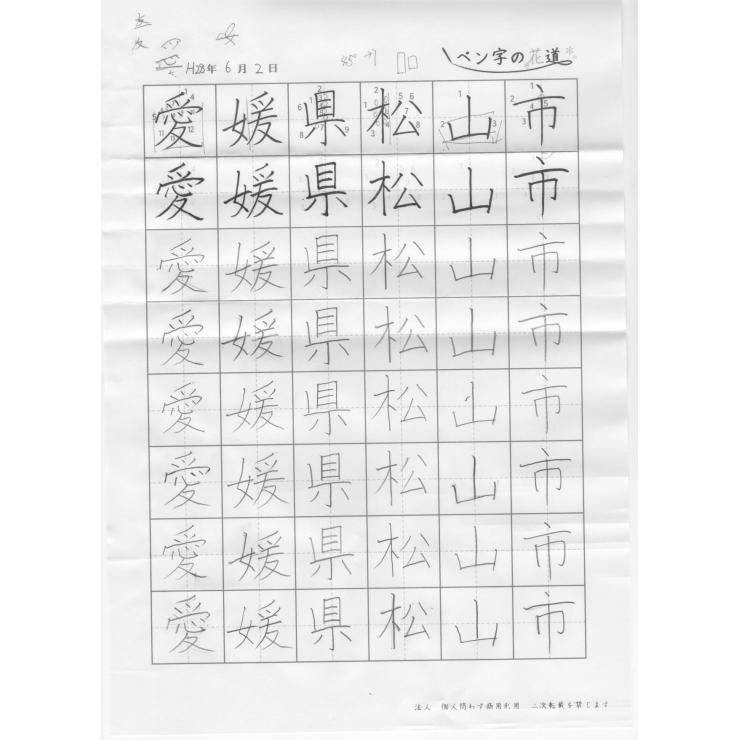 ペン字の花道
H28年 6月 2日
45°
愛媛県松山市
愛媛県松山市
愛媛県松山市
愛媛県松山市
愛媛県松山市
愛媛県松山市
愛媛県松山市
愛媛県松山市
法人 個人問わず商用利用 二次転載を禁じます